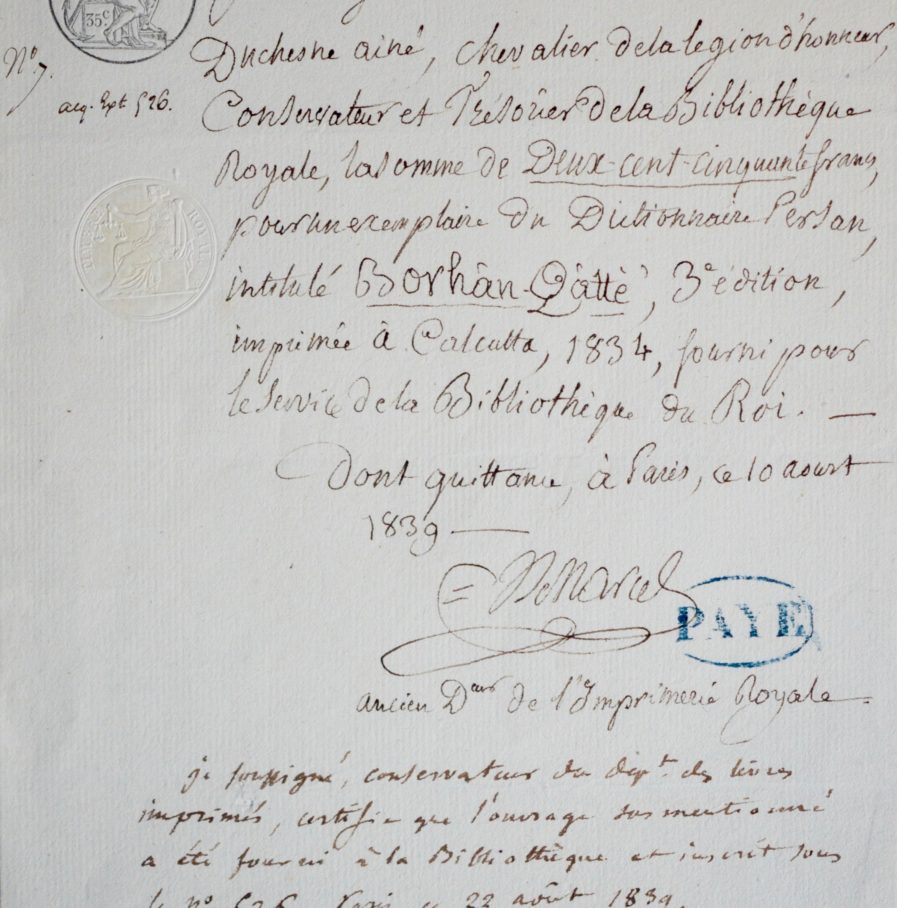 35c
No 7.
acq. Ext 526.
Duchesne ainé, Chevalier de la légion d'honneur,
Conservateur et Trésorier de la Bibliothèque
Royale, la somme de Deux-cent-cinquante francs,
pour un exemplaire du Dictionnaire Persan,
intitulé Borhân-Qâttè', 3e édition,
imprimée à Calcutta, 1834, fourni pour
le service de la Bibliothèque du Roi. —
Dont quittance, à Paris, ce 10 aoust
1839 —
Marcel
PAYE
ancien Deur de l'Imprimerie Royale =
je soussigné, conservateur du dépt. des livres
imprimés, certifie que l'ouvrage sus mentionné
a été fourni à la Bibliothèque et inscrit sous
le no 526. Paris ce 22 août 1839.